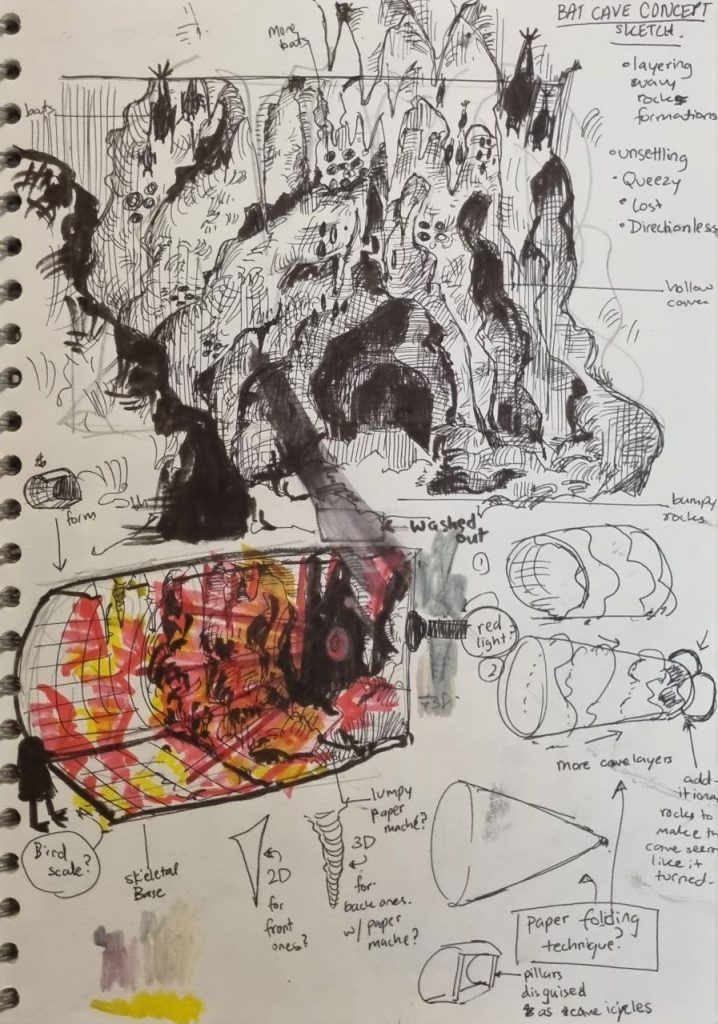 BAT CAVE CONCEPT
SKETCH.
more
bats
bats
layering
wavy
rocks
formations
unsettling
Queezy
Lost
Directionless
hollow
cover
bumpy
rocks
form
washed
out
1
red
light?
2
more cave layers
add-
itional
rocks to
make the
cave seem
like it
turned.
Bird
scale?
skeletal
Base
2D
for
front
ones?
lumpy
paper
mache?
3D
for
back ones.
w/ paper
mache?
paper folding
technique?
pillars
disguised
as cave icycles